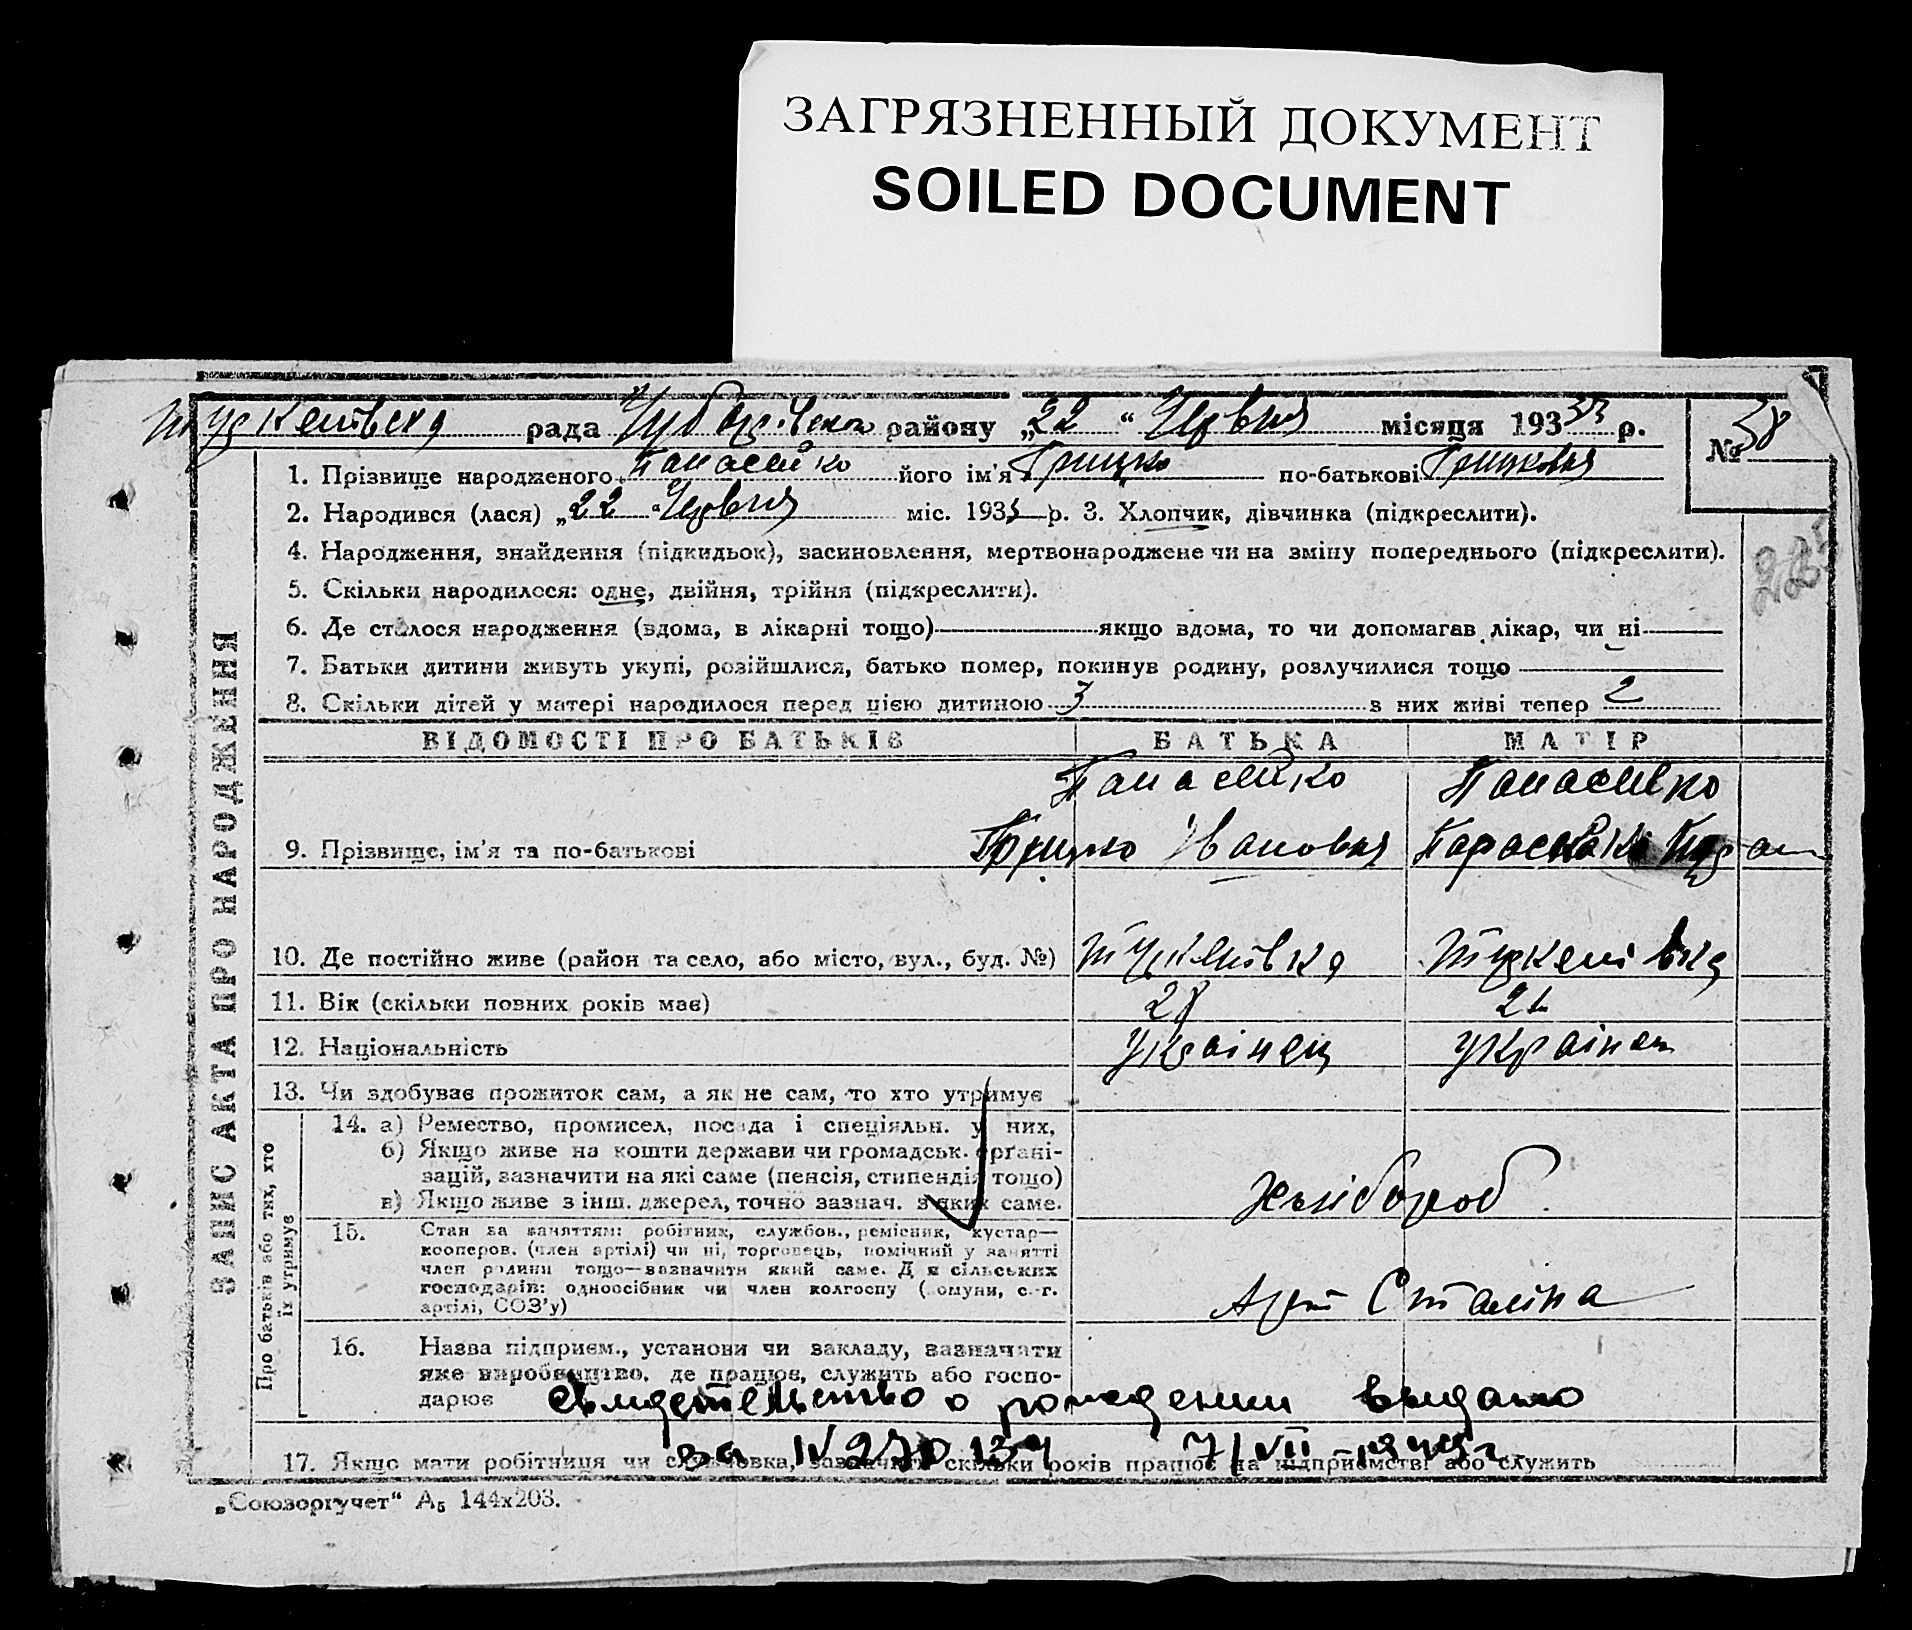 ЗАГРЯЗНЕННЫЙ ДОКУМЕНТ
SOILED DOCUMENT
рада району „22 “ Червня місяця 193 33 р. № 38
1. Прізвище народженого Панасенко його ім'я Грицко по-батькові Грицковия
2. Народився (лася) „22 “ Червня міс. 193 р. 3. Хлопчик, дівчинка (підкреслити).
4. Народження, знайдення (підкидьок), засиновлення, мертвонароджене чи на зміну попереднього (підкреслити).
5. Скільки народилося: одне, двійня, трійня (підкреслити).
6. Де сталося народження (вдома, в лікарні тощо) якщо вдома, то чи допомагав лікар, чи ні
7. Батьки дитини живуть укупі, розійшлися, батько помер, покинув родину, розлучилися тощо
8. Скільки дітей у матері народилося перед цією дитиною 3 з них живі тепер 2
ЗАПИС АКТА ПРО НАРОДЖЕННЯ
ВІДОМОСТІ ПРО БАТЬКІВ БАТЬКА МАТІР
Панасенко Панасенко
9. Прізвище, ім'я та по-батькові Грицко Івановия
10. Де постійно живе (район та село, або місто, вул., буд. №)
11. Вік (скільки повних років має) 28
12. Національність українец українец
13. Чи здобуває прожиток сам, а як не сам, то хто утримує
Про батьків або тих, хто їх утримує
14. а) Ремество, промисел, посада і спеціяльн. у них,
б) Якщо живе на кошти держави чи громадськ. органі-
зацій, зазначити на які саме (пенсія, стипендія тощо)
в) Якщо живе з інш. джерел, точно зазнач. з яких саме.
хлібороб
15. Стан за заняттям: робітник, службов., ремісник, кустар—
кооперов. (член артілі) чи ні, торговець, помічний у занятті
член родини тощо—зазначити який саме. Для сільських
господарів: одноосібник чи член колгоспу (комуни, с.-г.
артілі, СОЗ'у)
Арт Сталіна
16. Назва підприєм., установи чи закладу, зазначити
яке виробництво, де працює, служить або госпо-
дарює
свидетельство о рождении выдано
за 7/VII
17. Якщо мати робітниця чи службовка, зазначити скільки років працює на підприємстві або служить
„Союзоргучет“ А₅ 144х203.